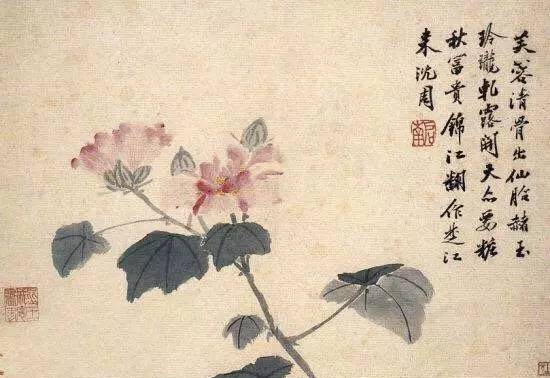 芙蓉清骨出仙胎赭玉
玲瓏軋露開天亦要粧
秋富貴錦江翻作楚江
来沈周
啟南